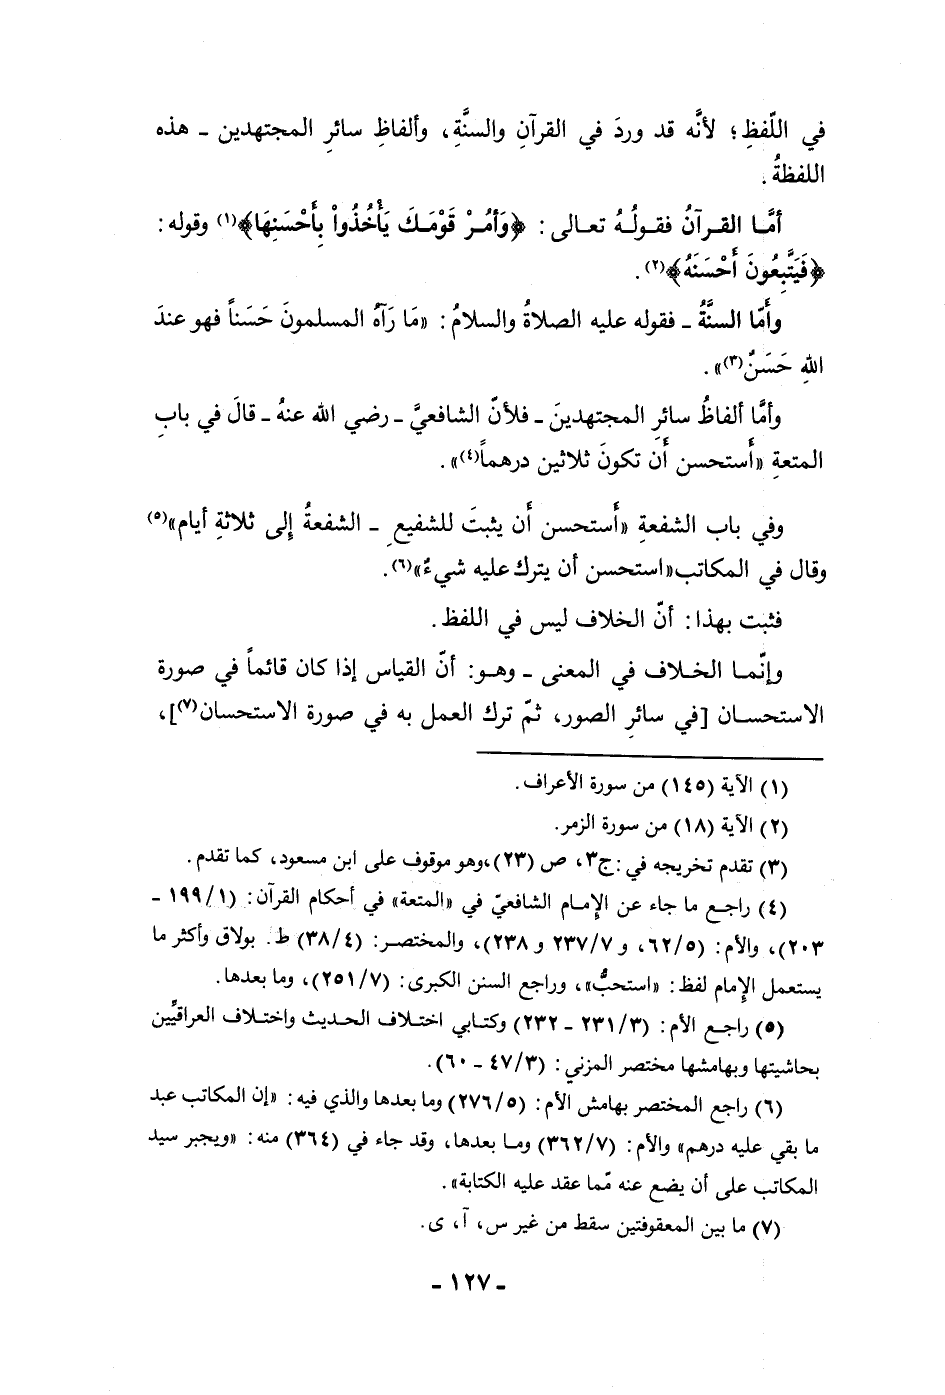 في اللّفظِ؛ لأنَّه قد وردَ في القرآنِ والسنَّةِ، وألفاظِ سائرِ المجتهدين ـ هذه
اللفظةُ.
أمَّا القرآنُ فقولُهُ تعالى: ﴿وَأمُرْ قَوْمَكَ يَأْخُذُواْ بِأَحْسَنِهَا﴾(١) وقوله:
﴿فَيَتَّبِعُونَ أَحْسَنَهُ﴾(٢).
وأَمّا السنَّةُ ـ فقوله عليه الصلاةُ والسلامُ: «مَا رَآهُ المسلمونَ حَسَناً فهو عندَ
اللهِ حَسَنٌ(٣)».
وأمَّا ألفاظُ سائرِ المجتهدينَ ـ فلأنّ الشافعيَّ ـ رضي الله عنهُ ـ قالَ في بابِ
المتعةِ «أَستحسن أَن تكونَ ثلاثين درهماً(٤)».
وفي باب الشفعةِ «أَستحسن أَن يثبتَ للشفيعِ ـ الشفعةُ إلى ثلاثةِ أيام»(٥)
وقال في المكاتب«استحسن أن يترك عليه شيءٌ»(٦).
فثبت بهذا: أنّ الخلاف ليس في اللفظ.
وإنّما الخلاف في المعنى ـ وهو: أنّ القياس إذا كان قائماً في صورة
الاستحسان [في سائرِ الصور، ثمّ ترك العمل به في صورة الاستحسان(٧)]،
(١) الآية (١٤٥) من سورة الأعراف.
(٢) الآية (١٨) من سورة الزمر.
(٣) تقدم تخريجه في: ج٣، ص (٢٣)،وهو موقوف على ابن مسعود، كما تقدم.
(٤) راجع ما جاء عن الإمام الشافعيّ في «المتعة» في أحكام القرآن: (١/١٩٩ ـ
٢٠٣)، والأم: (٥/٦٢، و ٧/٢٣٧ و ٢٣٨)، والمختصر: (٤/٣٨) ط. بولاق وأكثر ما
يستعمل الإمام لفظ: «استحبُّ»، وراجع السنن الكبرى: (٧/٢٥١)، وما بعدها.
(٥) راجع الأم: (٣/٢٣١ ـ ٢٣٢) وكتابي اختلاف الحديث واختلاف العراقيِّين
بحاشيتها وبهامشها مختصر المزني: (٣/٤٧ ـ ٦٠).
(٦) راجع المختصر بهامش الأم: (٥/٢٧٦) وما بعدها والذي فيه: «إن المكاتب عبد
ما بقي عليه درهم» والأم: (٧/٣٦٢) وما بعدها، وقد جاء في (٣٦٤) منه: «ويجبر سيد
المكاتب على أن يضع عنه مّما عقد عليه الكتابة».
(٧) ما بين المعقوفتين سقط من غير س، آ، ى.
ـ ١٢٧ ـ